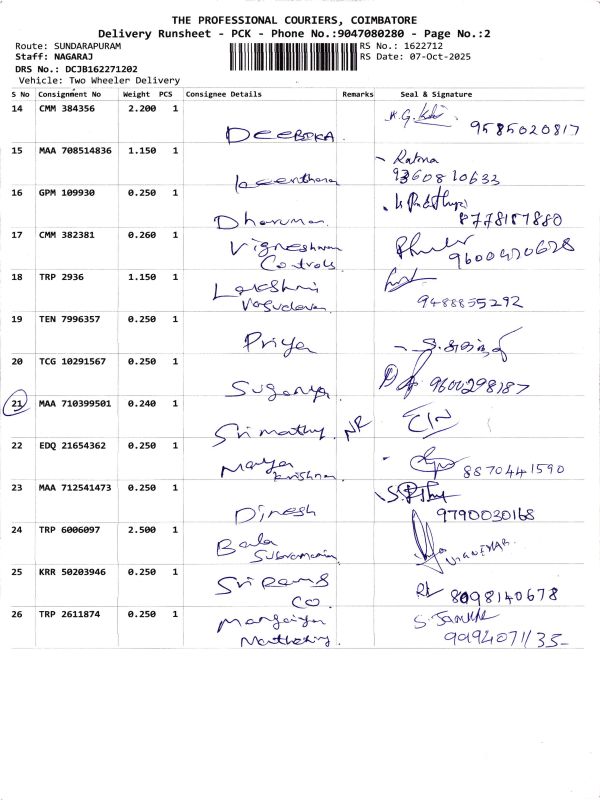 THE PROFESSIONAL COURIERS, COIMBATORE
Delivery Runsheet - PCK - Phone No.:9047080280 - Page No.:2
Route: SUNDARAPURAM RS No.: 1622712
Staff: NAGARAJ RS Date: 07-Oct-2025
DRS No.: DCJB162271202
Vehicle: Two Wheeler Delivery
S No Consignment No Weight PCS Consignee Details Remarks Seal & Signature
14 CMM 384356 2.200 1
DEEBOKA 9585020817
15 MAA 708514836 1.150 1 Ratna
9360810633
16 GPM 109930 0.250 1
Dharuman 8778187880
17 CMM 382381 0.260 1 Vigneshwara
Controls 9600420628
18 TRP 2936 1.150 1 Lakshmi
Vasudevan 9488855292
19 TEN 7996357 0.250 1
Priya
20 TCG 10291567 0.250 1
Suganya 9600298187
21 MAA 710399501 0.240 1
Srimathy NR
22 EDQ 21654362 0.250 1
krishnan 8870441590
23 MAA 712541473 0.250 1
Dinesh 9790030168
24 TRP 6006097 2.500 1 Bala
Subramanian
25 KRR 50203946 0.250 1 Sri Rams
CO. 8098140678
26 TRP 2611874 0.250 1
9994071135